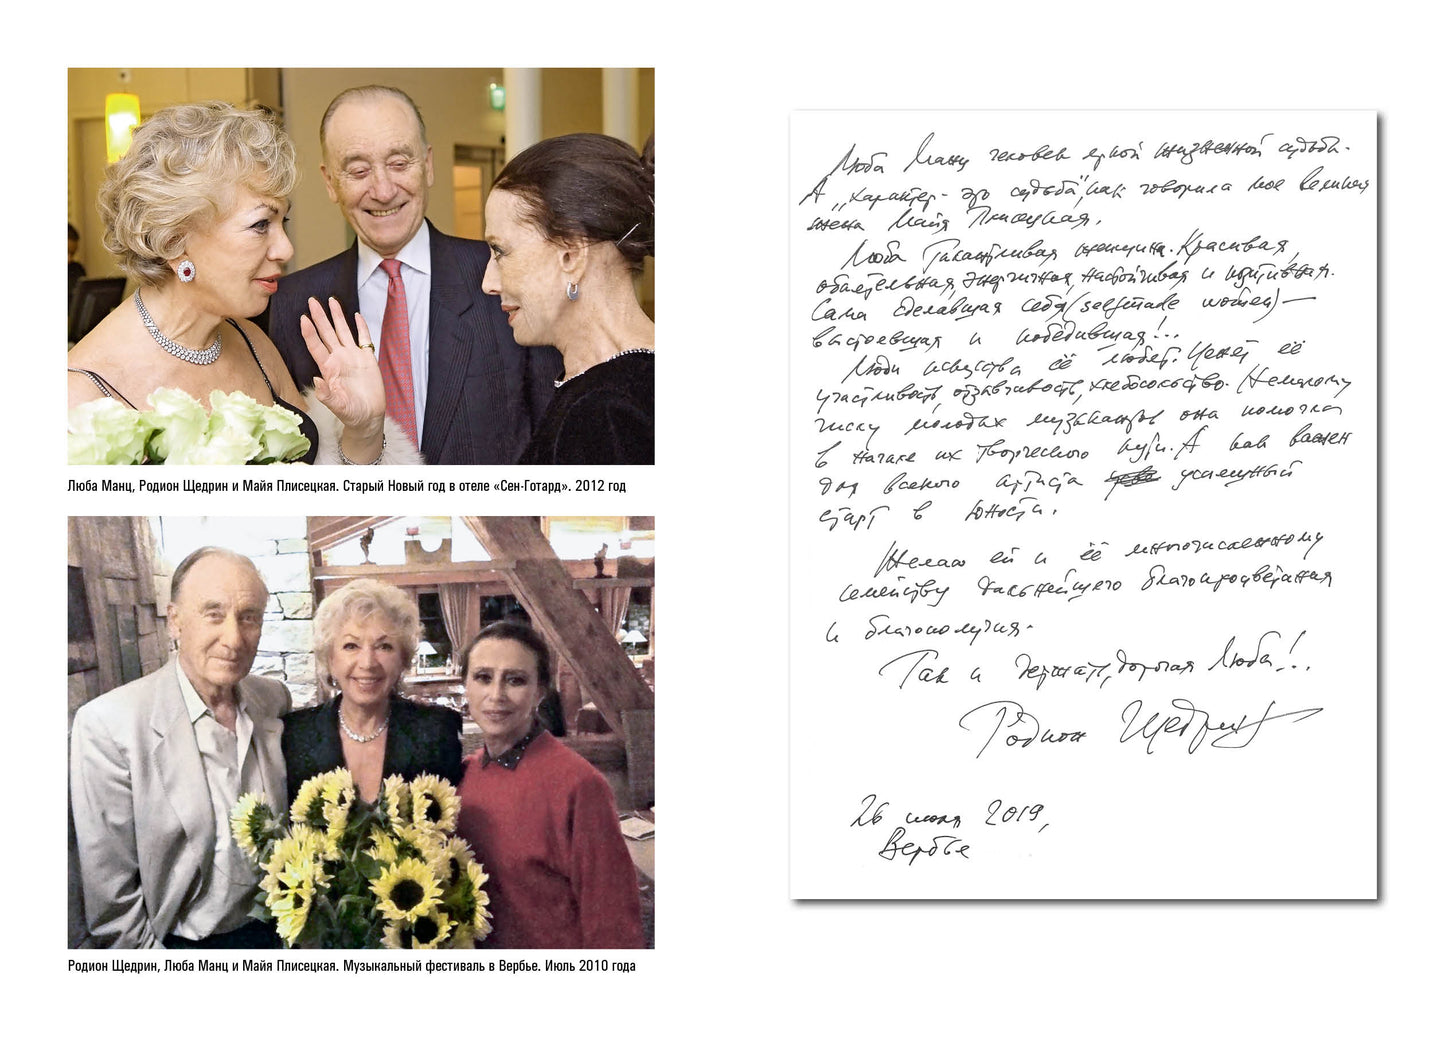 Люба Манц, Родион Щедрин и Майя Плисецкая. Старый Новый год в отеле «Сен-Готард». 2012 год
Родион Щедрин, Люба Манц и Майя Плисецкая. Музыкальный фестиваль в Вербье. Июль 2010 года
Люба Манц человек яркой жизненной судьбы.
А „характер - это судьба", как говорила моя великая
жена Майя Плисецкая.
Люба талантливая женщина. Красивая,
обаятельная, энергичная, настойчивая и
Сама сделавшая себя (selfmade women) —
выстоевшая и победившая!..
Люди искусства её любят. Ценят её
участливость, отзывчивость, хлебосольство. Немалому
числу молодых музыкантов она помогла
в начале их творческого пути. А как важен
для всякого артиста успешный
старт в юности.
Желаю ей и её многочисленному
семейству дальнейшего благопроцветания
и благополучия.
Так и держать, дорогая Люба!..
Родион Щедрин
26 июля 2019,
Вербье